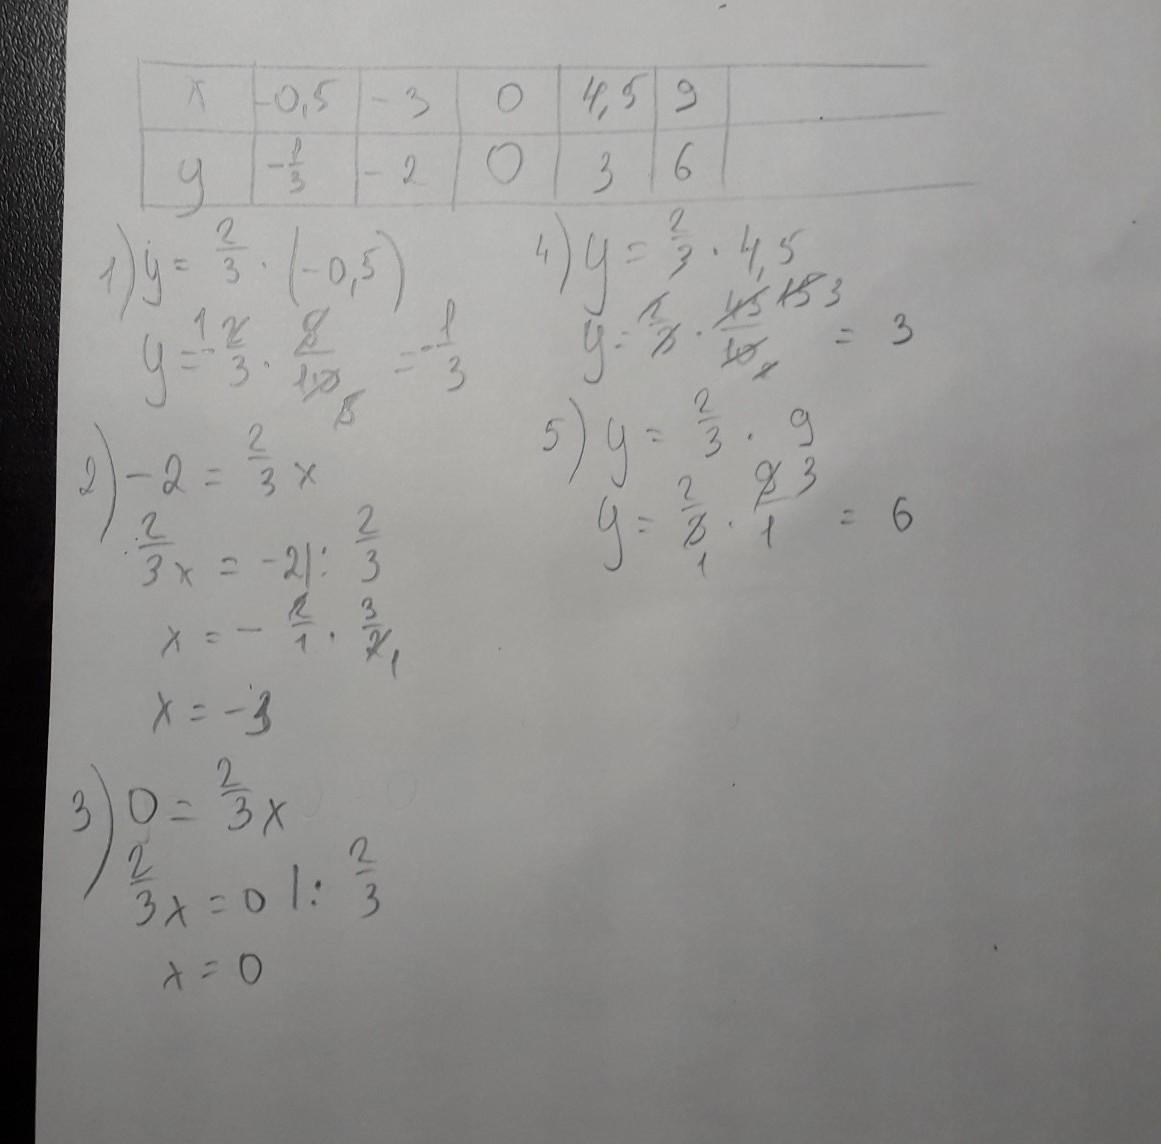 x -0,5 -3 0 4,5 9
y -1/3 -2 0 3 6
1) y = 2/3 · (-0,5)
y = -2/3 · 5/10 5 = -1/3
2) -2 = 2/3 x
2/3 x = -2 |: 2/3
x = - 2/1 · 3/2 1
x = -3
3) 0 = 2/3 x
2/3 x = 0 |: 2/3
x = 0
4) y = 2/3 · 4,5
y = 2/3 · 45/10 15 3 = 3
5) y = 2/3 · 9
y = 2/3 1 · 9/1 3 = 6